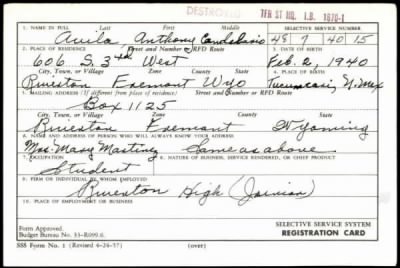 DESTROYED TFR ST NO. I.B. 1870-1
1. NAME IN FULL Last First Middle SELECTIVE SERVICE NUMBER
Avila, Anthony 48 7 40 15
2. PLACE OF RESIDENCE Street and Number or RFD Route 3. DATE OF BIRTH
606 S. 3rd West Feb. 2, 1940
City, Town, or Village Zone County State PLACE OF BIRTH
Riverton Fremont Wyo Tucumcari, N. Mex
4. MAILING ADDRESS (If different from place of residence) Street and Number or RFD Route
Box 1125
City, Town, or Village Zone County State
Riverton Fremont Wyoming
6. NAME AND ADDRESS OF PERSON WHO WILL ALWAYS KNOW YOUR ADDRESS
Mrs. Mary Martinez Same as above
7. OCCUPATION 8. NATURE OF BUSINESS, SERVICE RENDERED, OR CHIEF PRODUCT
Student
9. FIRM OR INDIVIDUAL BY WHOM EMPLOYED
Riverton High (Junior)
10. PLACE OF EMPLOYMENT OR BUSINESS
SELECTIVE SERVICE SYSTEM
Form Approved. REGISTRATION CARD
Budget Bureau No. 33-R099.6.
SSS Form No. 1 (Revised 4-24-57) (over)